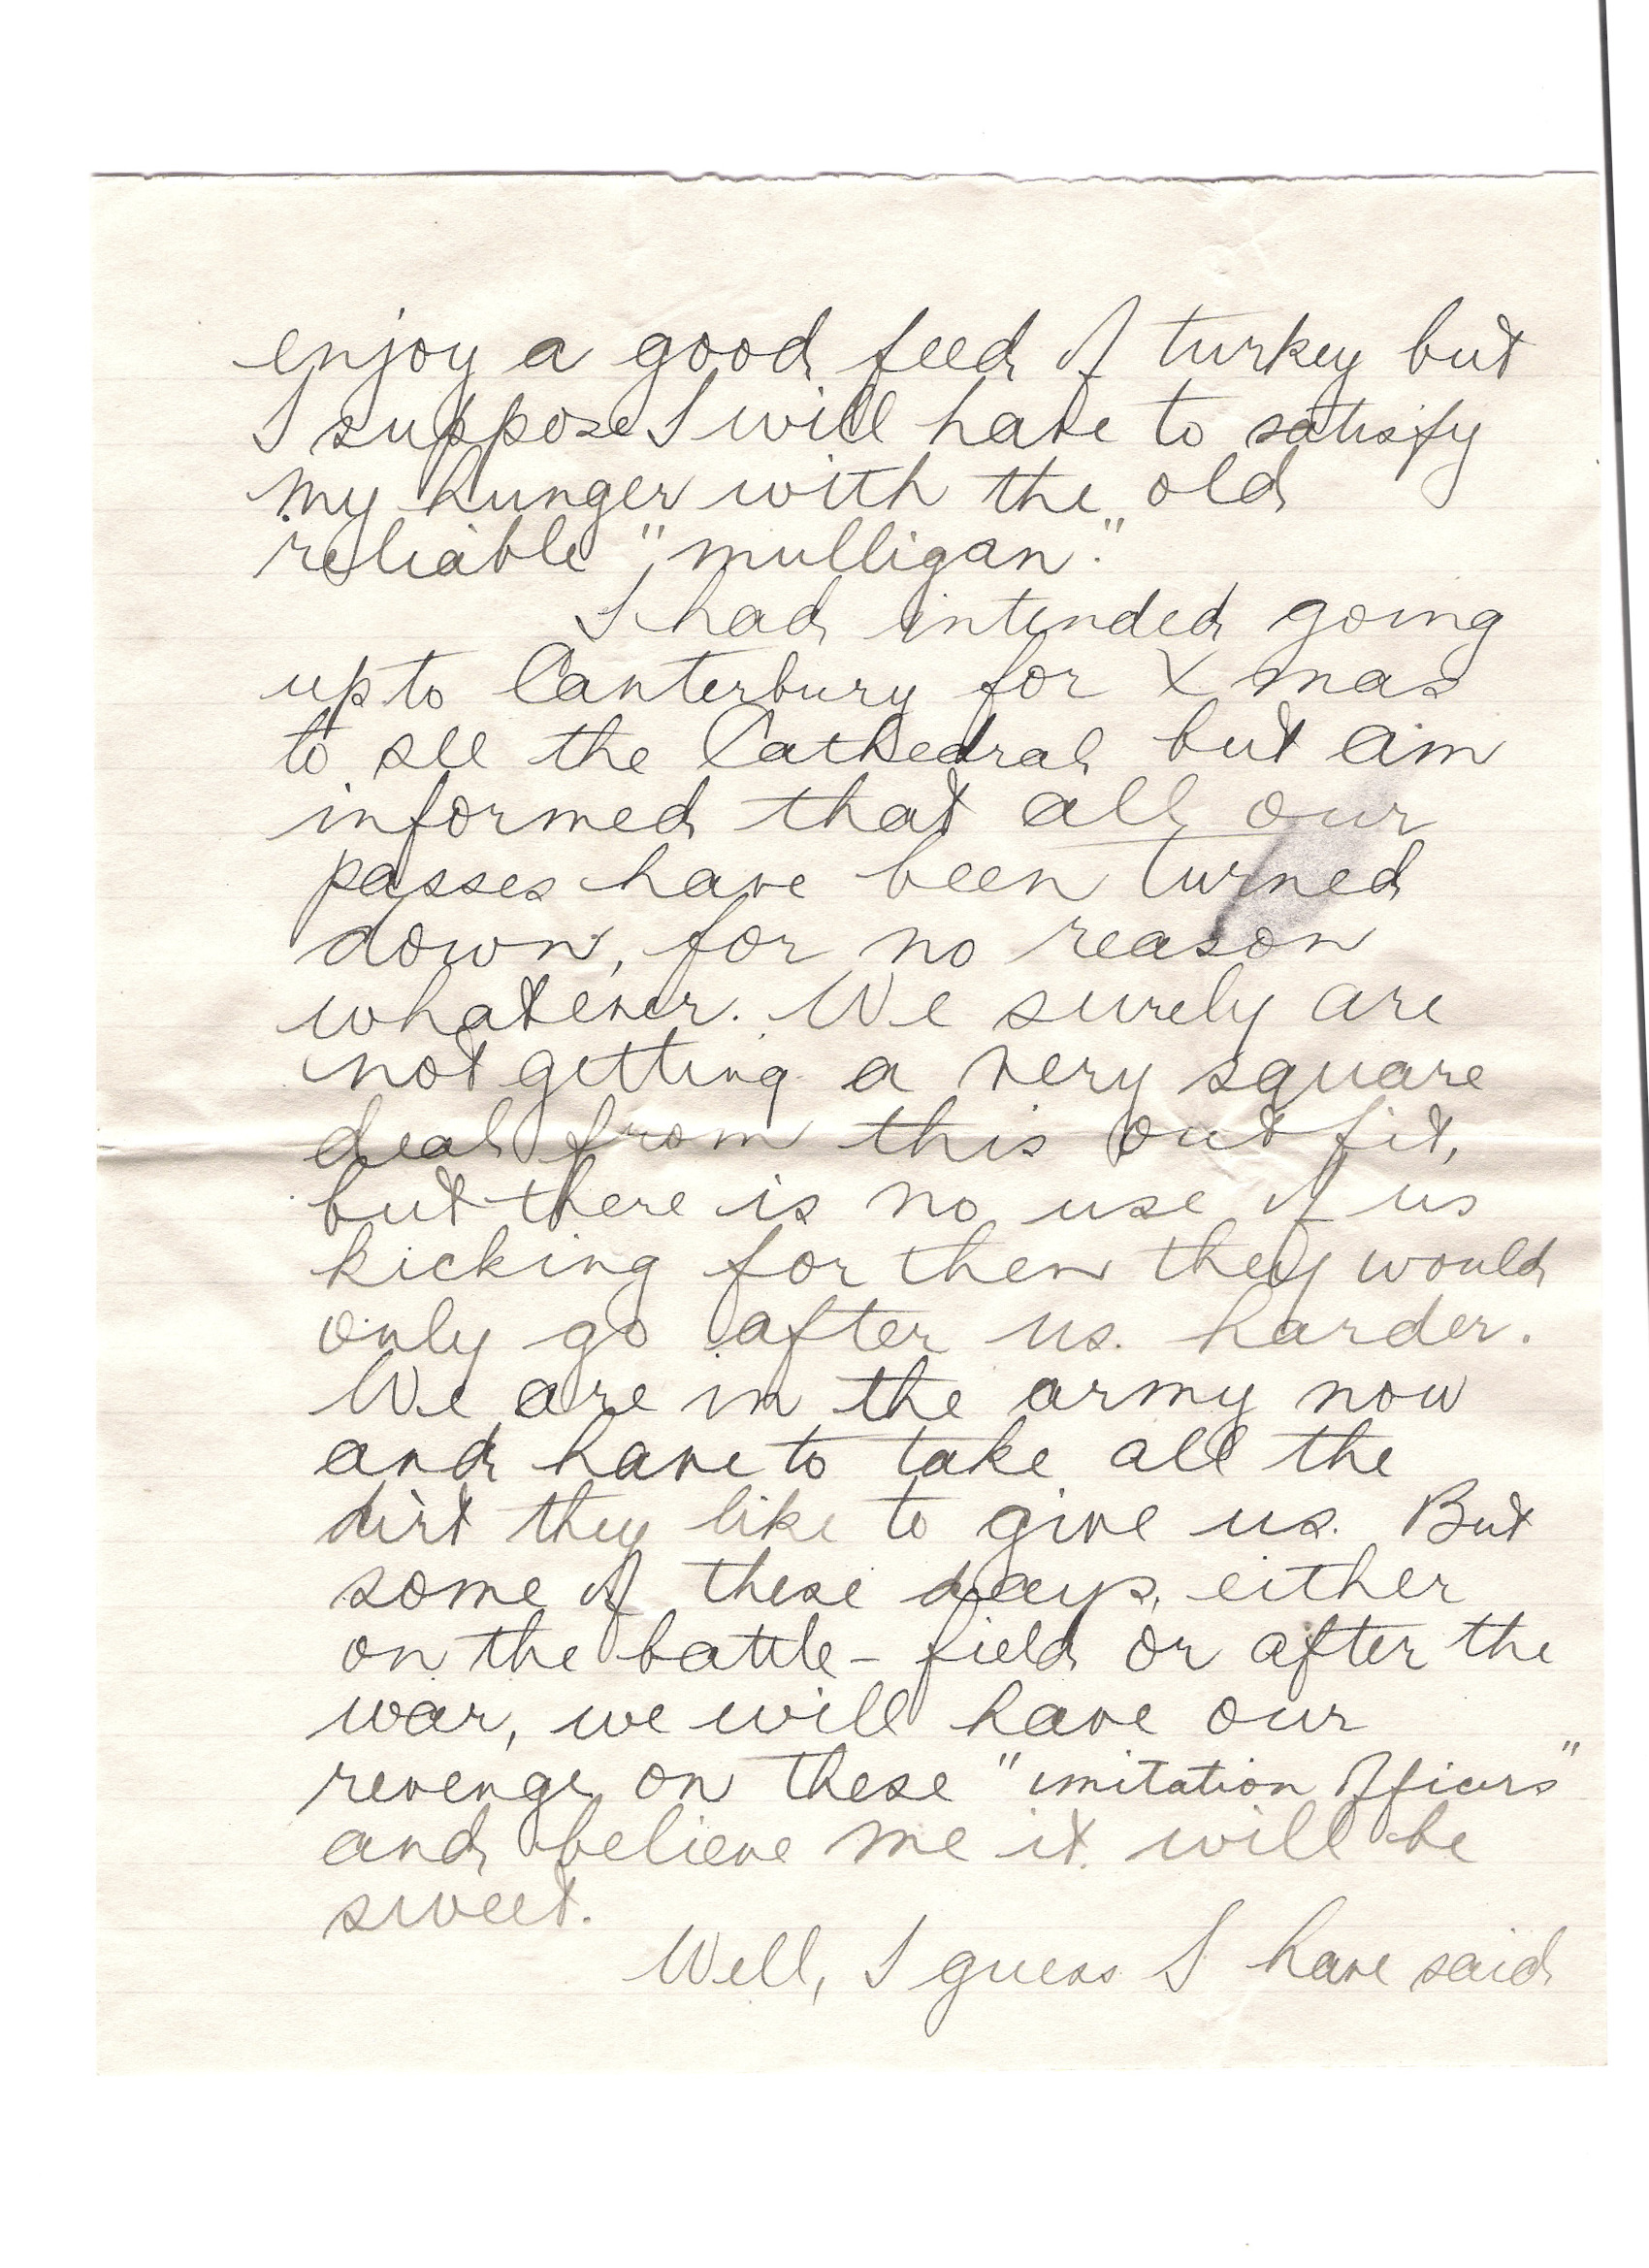 enjoy a good feed of turkey but
I suppose I will have to satisfy
my hunger with the old
reliable "mulligan."
I had intended going
up to Canterbury for Xmas
to see the Cathedral but am
informed that all our
passes have been turned
down, for no reason
whatever. We surely are
not getting a very square
deal from this outfit,
but there is no use of us
kicking for then they would
only go after us harder.
We are in the army now
and have to take all the
dirt they like to give us. But
some of these days, either
on the battle-field or after the
war, we will have our
revenge on these "imitation officers"
and believe me it will be
sweet.
Well, I guess I have said